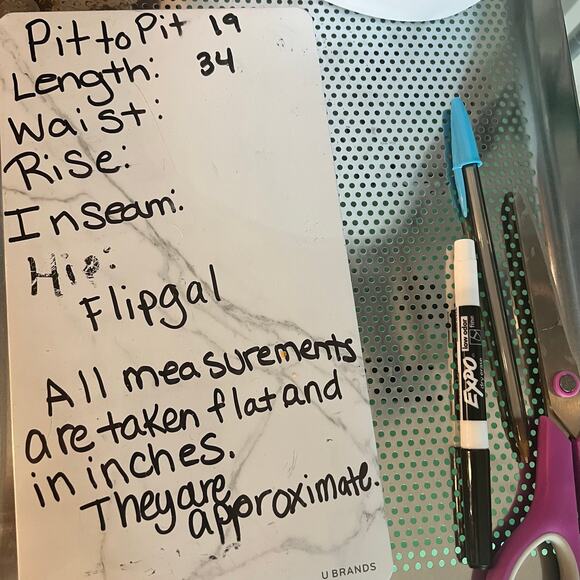 Pit to Pit 19
Length: 34
Waist:
Rise:
Inseam:
Hip:
Flipgal
All measurements
are taken flat and
in inches.
They are
approximate.
U BRANDS
EXPO
low odor
fine